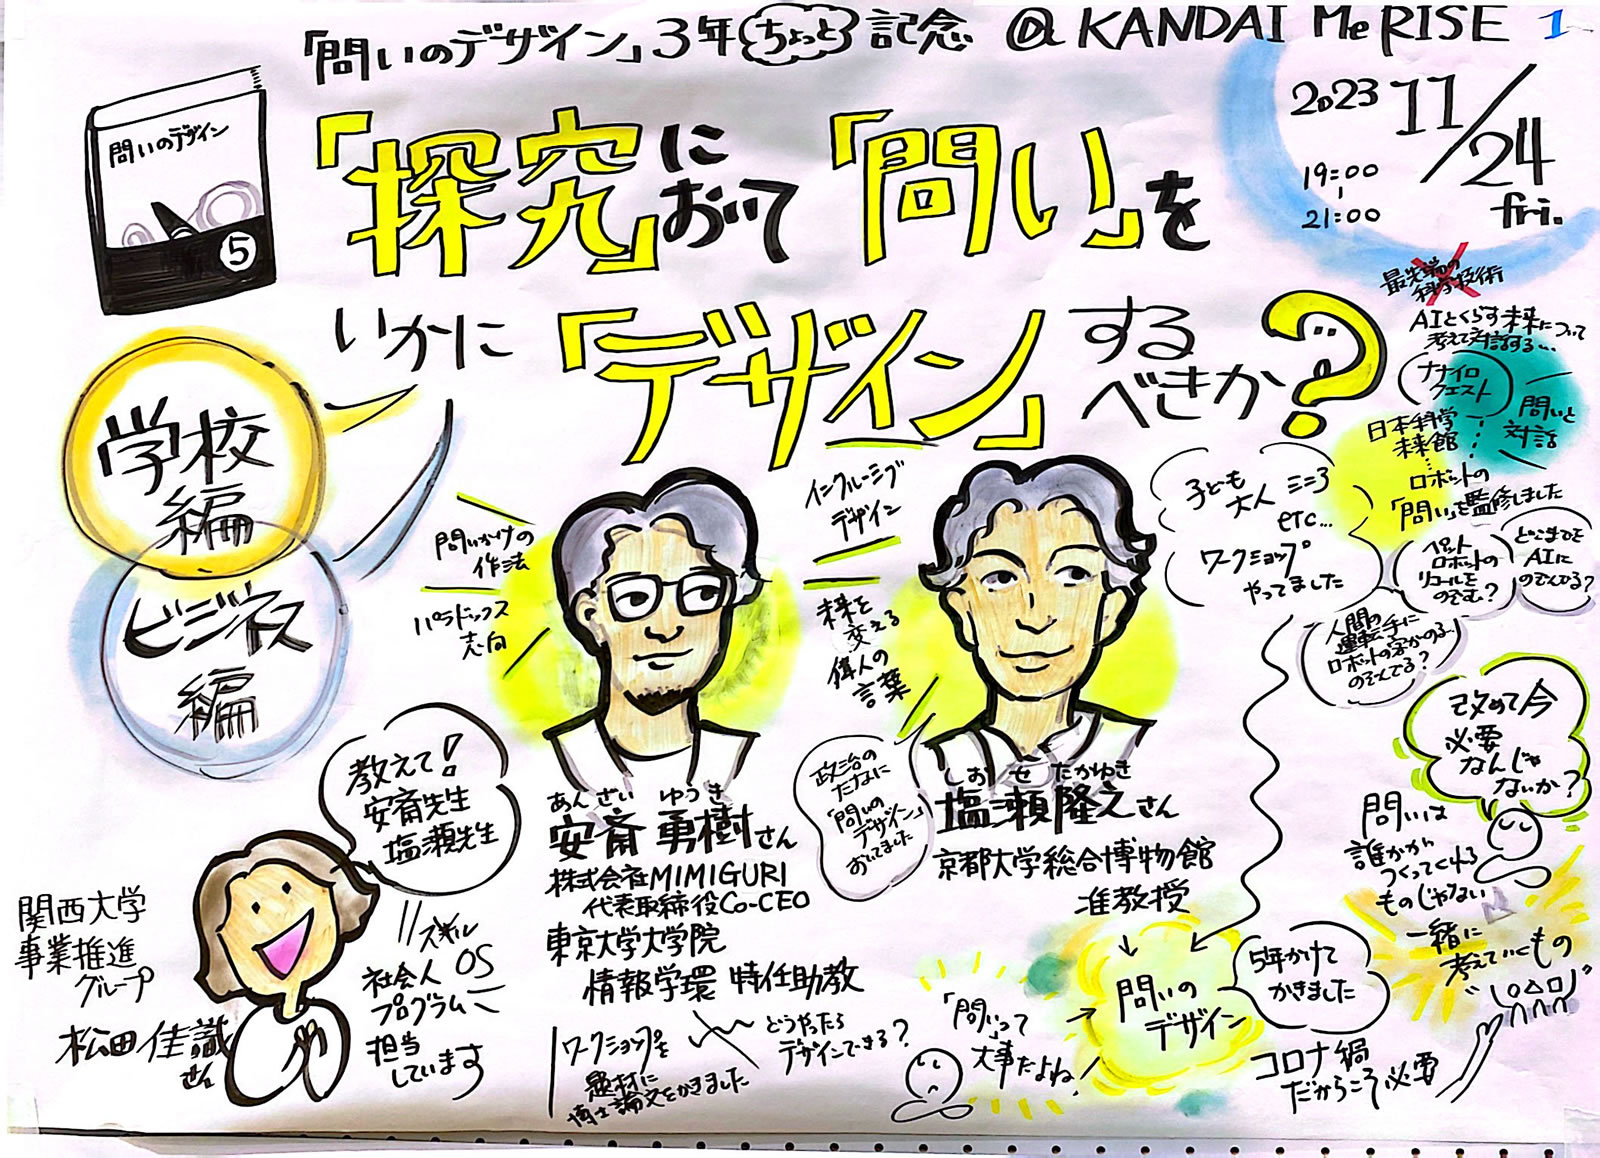 「問いのデザイン」3年ちょっと記念 @ KANDAI Me RISE 1
問いのデザイン
5
2023 11/24
fri.
19:00
21:00
「探究」において「問い」を
いかに「デザイン」するべきか?
学校編
ビジネス編
問いかけの
作法
パラドックス
志向
インクルーシブ
デザイン
未来を
変える
偉人の
言葉
政治の
たなに
「問いの
デザイン」
おいてました
教えて!
安斎先生
塩瀬先生
関西大学
事業推進
グループ
松田佳識
さん
社会人
OS
プログラム
担当
しています
あんざい ゆうき
安斎 勇樹さん
株式会社MIMIGURI
代表取締役Co-CEO
東京大学大学院
情報学環 特任助教
ワークショップを
題材に
博士論文をかきました
どうやったら
デザインできる?
しおせ たかゆき
塩瀬隆之さん
京都大学総合博物館
准教授
最先端の
科学技術
AIとくらす未来について
考えて対話する…
ナナイロ
クエスト
問いと
対話
日本科学
未来館
ロボットの
「問い」を監修しました
子ども
大人 ミニ3
etc…
ワークショップ
やってました
ペット
ロボットの
リコールを
のぞむ?
どこまでを
AIに
のぞんでる?
人間の
運転手に
ロボットの
のぞんでる?
改めて今
必要
なんじゃ
ないか?
問いは
誰かから
つくってくれる
ものじゃない
一緒に
考えていくもの
「問い」って
大事だよね
問いの
デザイン
5年かけて
かきました
コロナ禍
だからこそ必要